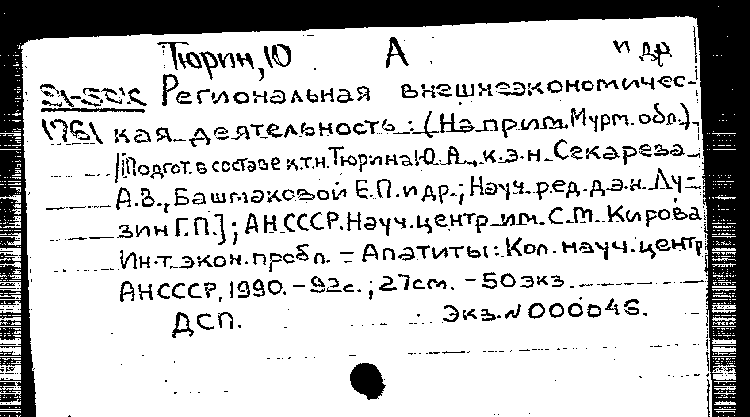 Тюрин, Ю А и др
Региональная внешнеэкономичес-
1761 кая деятельность: (На прим. Мурм. обл.)
/[Подгот. в составе к.т.н. Тюрина Ю.А., к.э.н. Секарева
А.В., Башмаковой Е.П. и др.; Науч. ред. д.э.н. Лу-
зин Г.П.]; АН СССР. Науч. центр им. С.М. Кирова
Ин-т экон. пробл. – Апатиты: Кол. науч. центр
АН СССР, 1990. – 92с.; 27см. – 50 экз.
ДСП. Экз. № 000046.